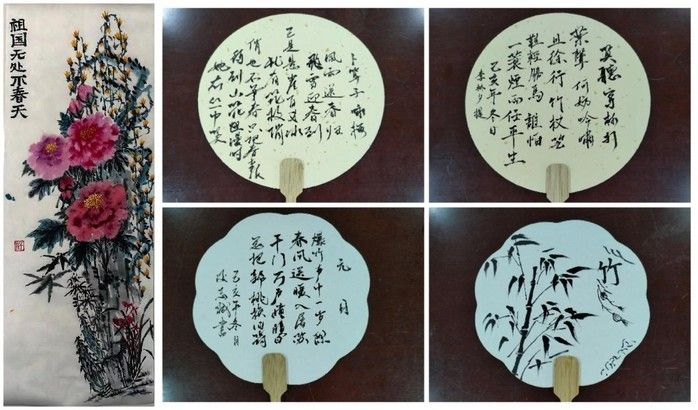 祖国无处不春天
卜算子 咏梅
风雨送春归
飞雪迎春到
已是悬崖百丈冰
犹有花枝俏
俏也不争春只把春来报
待到山花烂漫时
她在丛中笑
莫听穿林打
叶声何妨吟啸
且徐行竹杖芒
鞋轻胜马谁怕
一蓑烟雨任平生
己亥年冬日
元日
爆竹声中一岁除
春风送暖入屠苏
千门万户曈曈日
总把新桃换旧符
己亥年冬月
竹